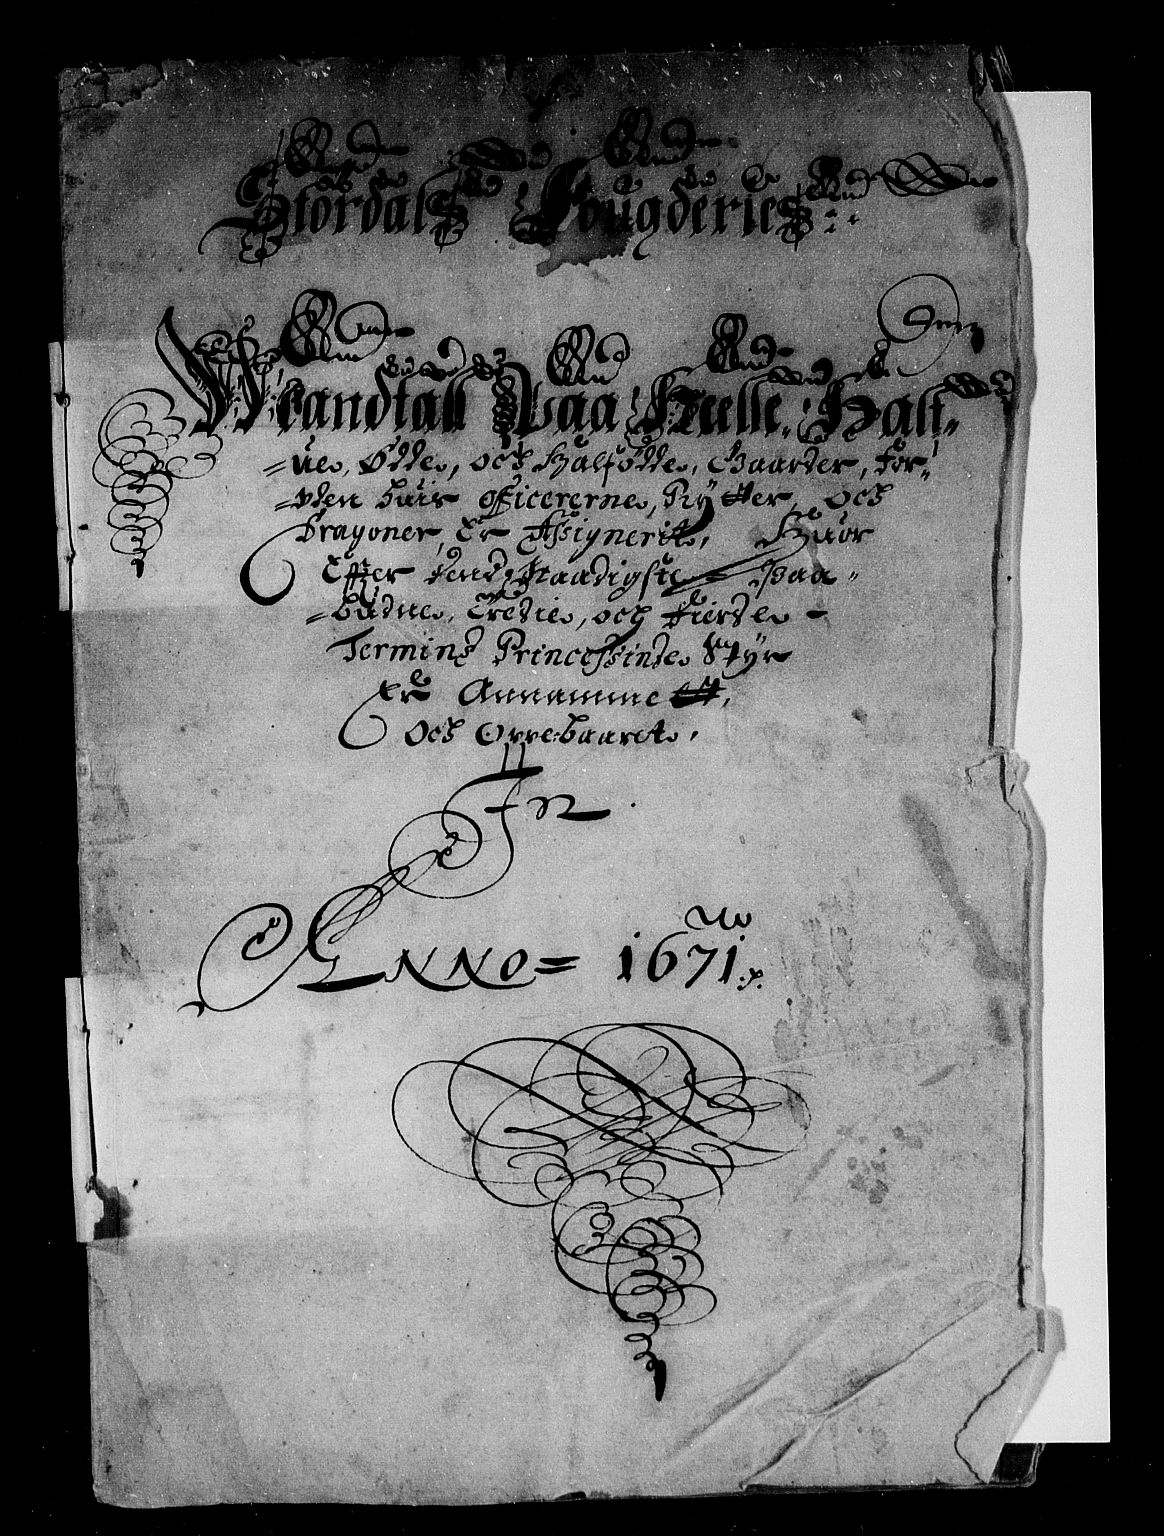 Stördals Fougderies
Mandtall Paa Heelle, Half-
=ue, Ødde, och Halfødde, Gaarder, For-
=uden huis officererne, Rytter, och
Dragoner, Er Assignerit, Huor
Effter dend Naadigste Paa-
=budne, Tredie, och Fierde
Termins Princessinde Styr
Er Annamme
Och Oppebaaret,
Pro
Anno = 1671